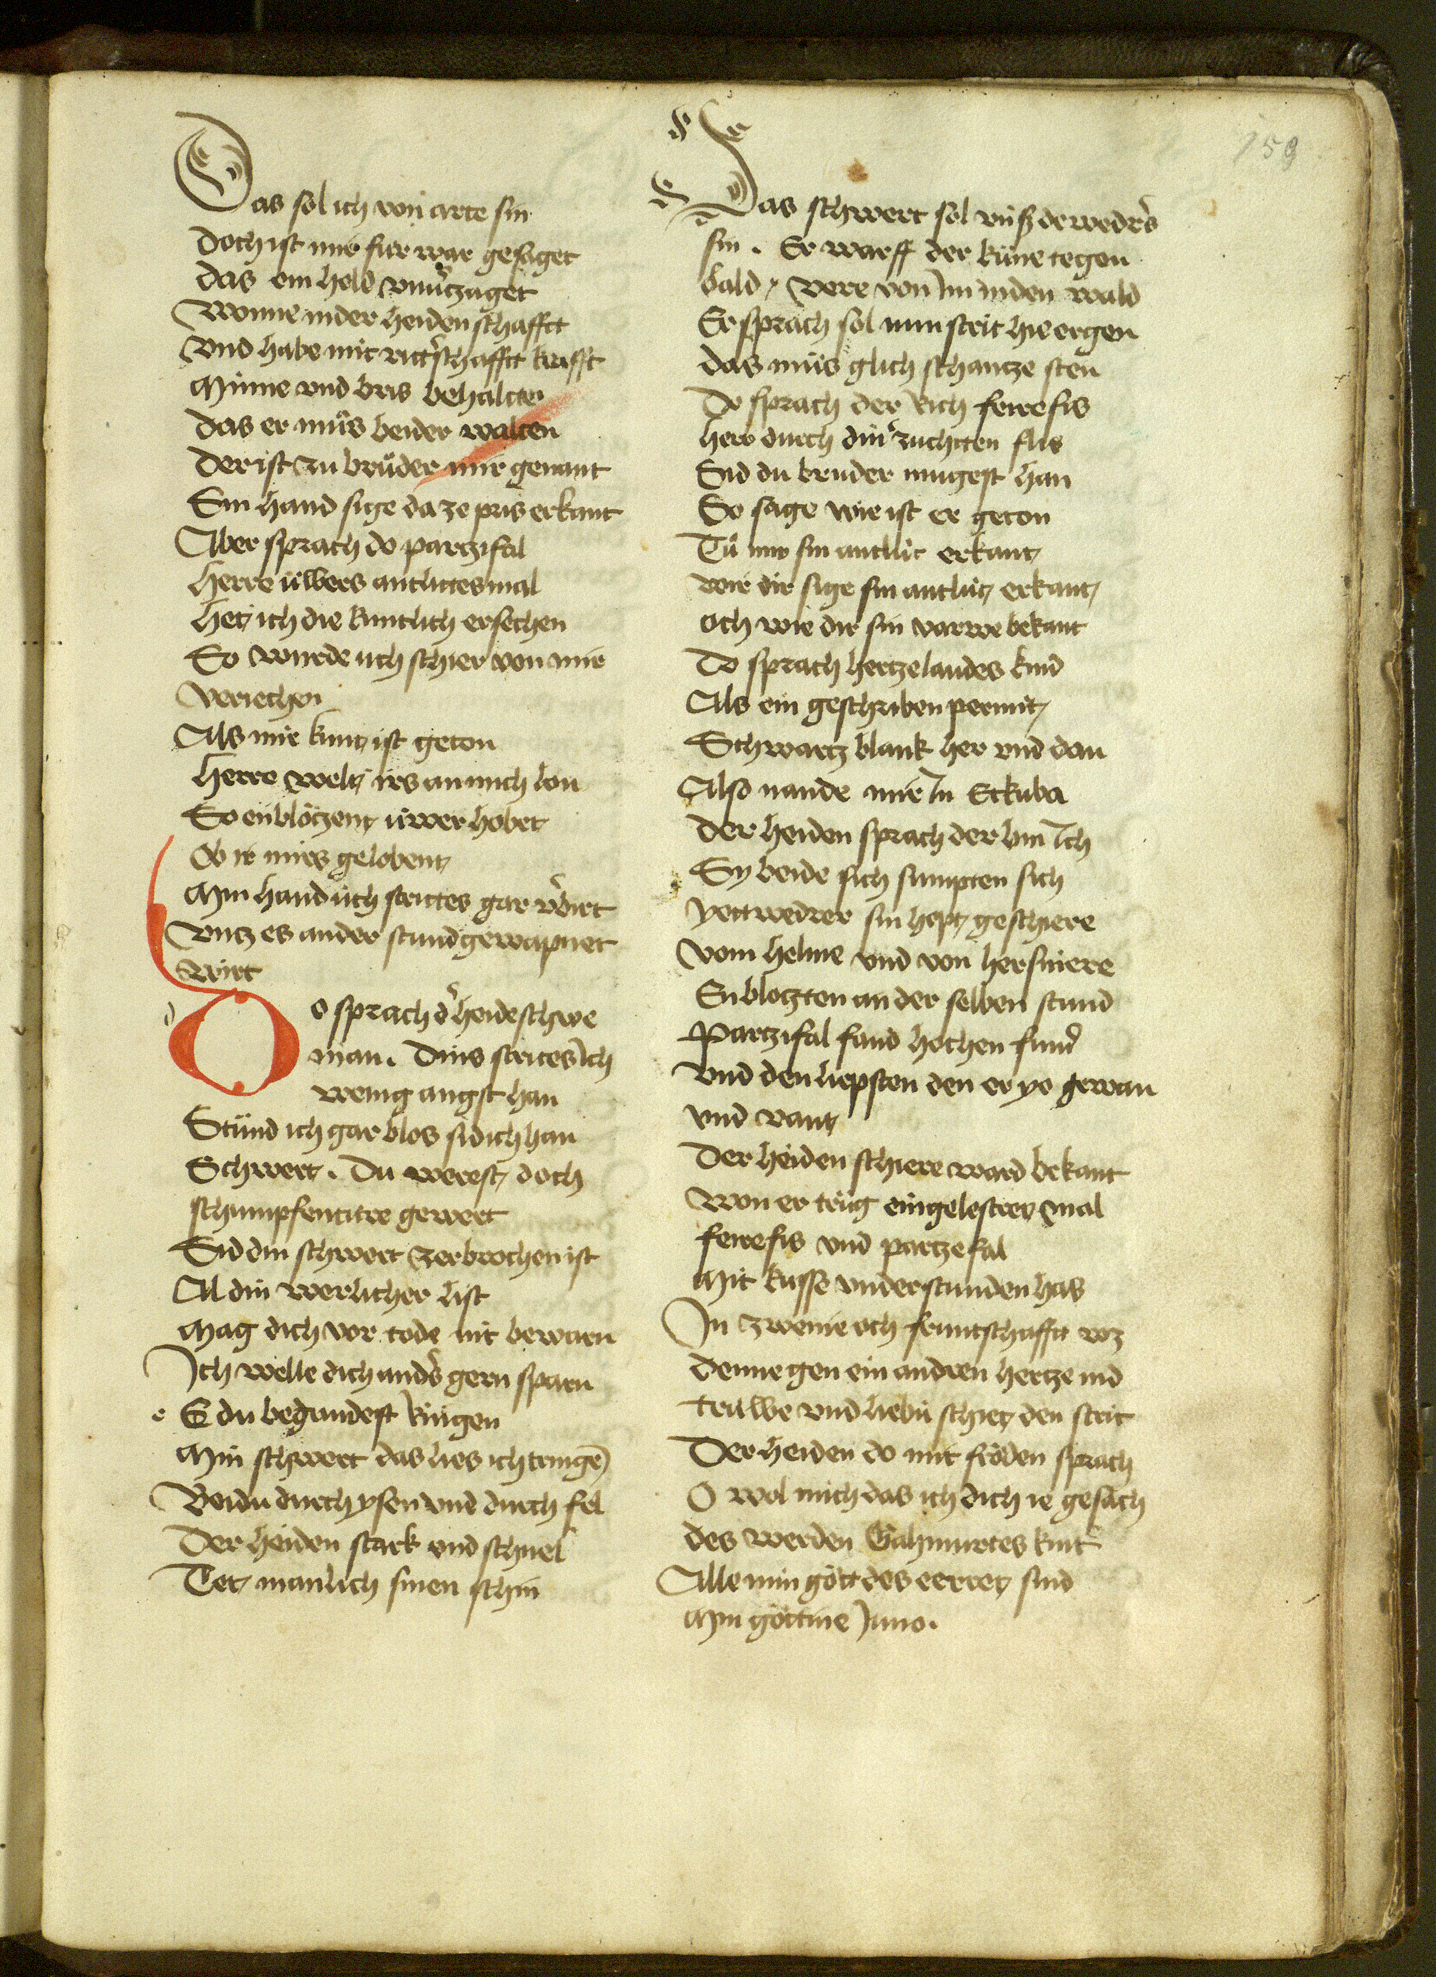 159
Das sol ich von arte sin
Doch ist mir fúr war gesaget
das ein held vnuerzaget
Wonne in der heidenschafft
Vnd habe mit ritterschafft krafft
Minne vnd bris behalten
das er mu̍s beider walten
Der ist zu bru̍der mir genant
Sin hand sige da ze pris erkant
Aber sprach do partzifal
Herre u̍wers antlittes mal
Het ich die kuntlich ersechen
So wurde uch schier von mir
veriechen
Als mir kunt ist geton
Herre welt irs an mich lon
So enblo̍tzent u̍wer hobet
Ob ir mirs gelobent
Min hand u̍ch strites gar v̓birt
Vntz es ander stund gewapnet
wirt
Do sprach d̓ heidesche
man. Dins strites Ich
wenig angst han
Stu̍nd ich gar blos sid ich han
Schwert. Du werest doch
schumpfenture gewert
Sid din schwert zerbrochen ist
Al din werlicher list
Mag dich vor tode nit bewarn
Ich welle dich and̓s gern sparn
E du begundest ringen
Min schwert das lies ich tringe̅
Beidu durch ysen vnd durch fel
Der heiden stark vnd schnel
Tet manlich sinen schin
Das schwert sol vnser dewedr̓s
sin. Er warff der ku̍ne tegen
bald verre von Im in den wald
Er sprach sol nun strit hie ergen
das mu̍s glich schantze sten
Do sprach der rich feirefis
herr durch din̓ zuchten flis
Sid du bruder mugest han
So sage wie ist er geton
Tu̍ mir sin antlu̍t erkant
wie dir sige sin antlu̍t erkant
och wie dir sin varwe bekant
Do sprach hertzelaudes kind
Als ein geschriben permit
Schwartz blank her vnd dan
Also nande mir In Eckuba
der heiden sprach der bin Ich
Sy beide sich sumpten sich
yettwedrer sin hopt geschiere
vom helme vnd von hersniere
Enblotzten an der selben stund
Partzifal fand hochen fund
Vnd den liepsten den er ye gewan
vnd vant
Der heiden schiere ward bekant
Won er tru̍g eingelestren mal
feirefis vnd partzefal
Mit kusse vnderstunden has
In zweine och fruntschafft baz
denne gen ein andren hertze nid
truwe vnd liebu schiet den strit
Der heiden do mit fro̍den sprach
O wol mich das ich dich ie gesach
des werden Gahmurtes kint
Alle min go̍tt des eerret sind
Min go̍ttine Juno.